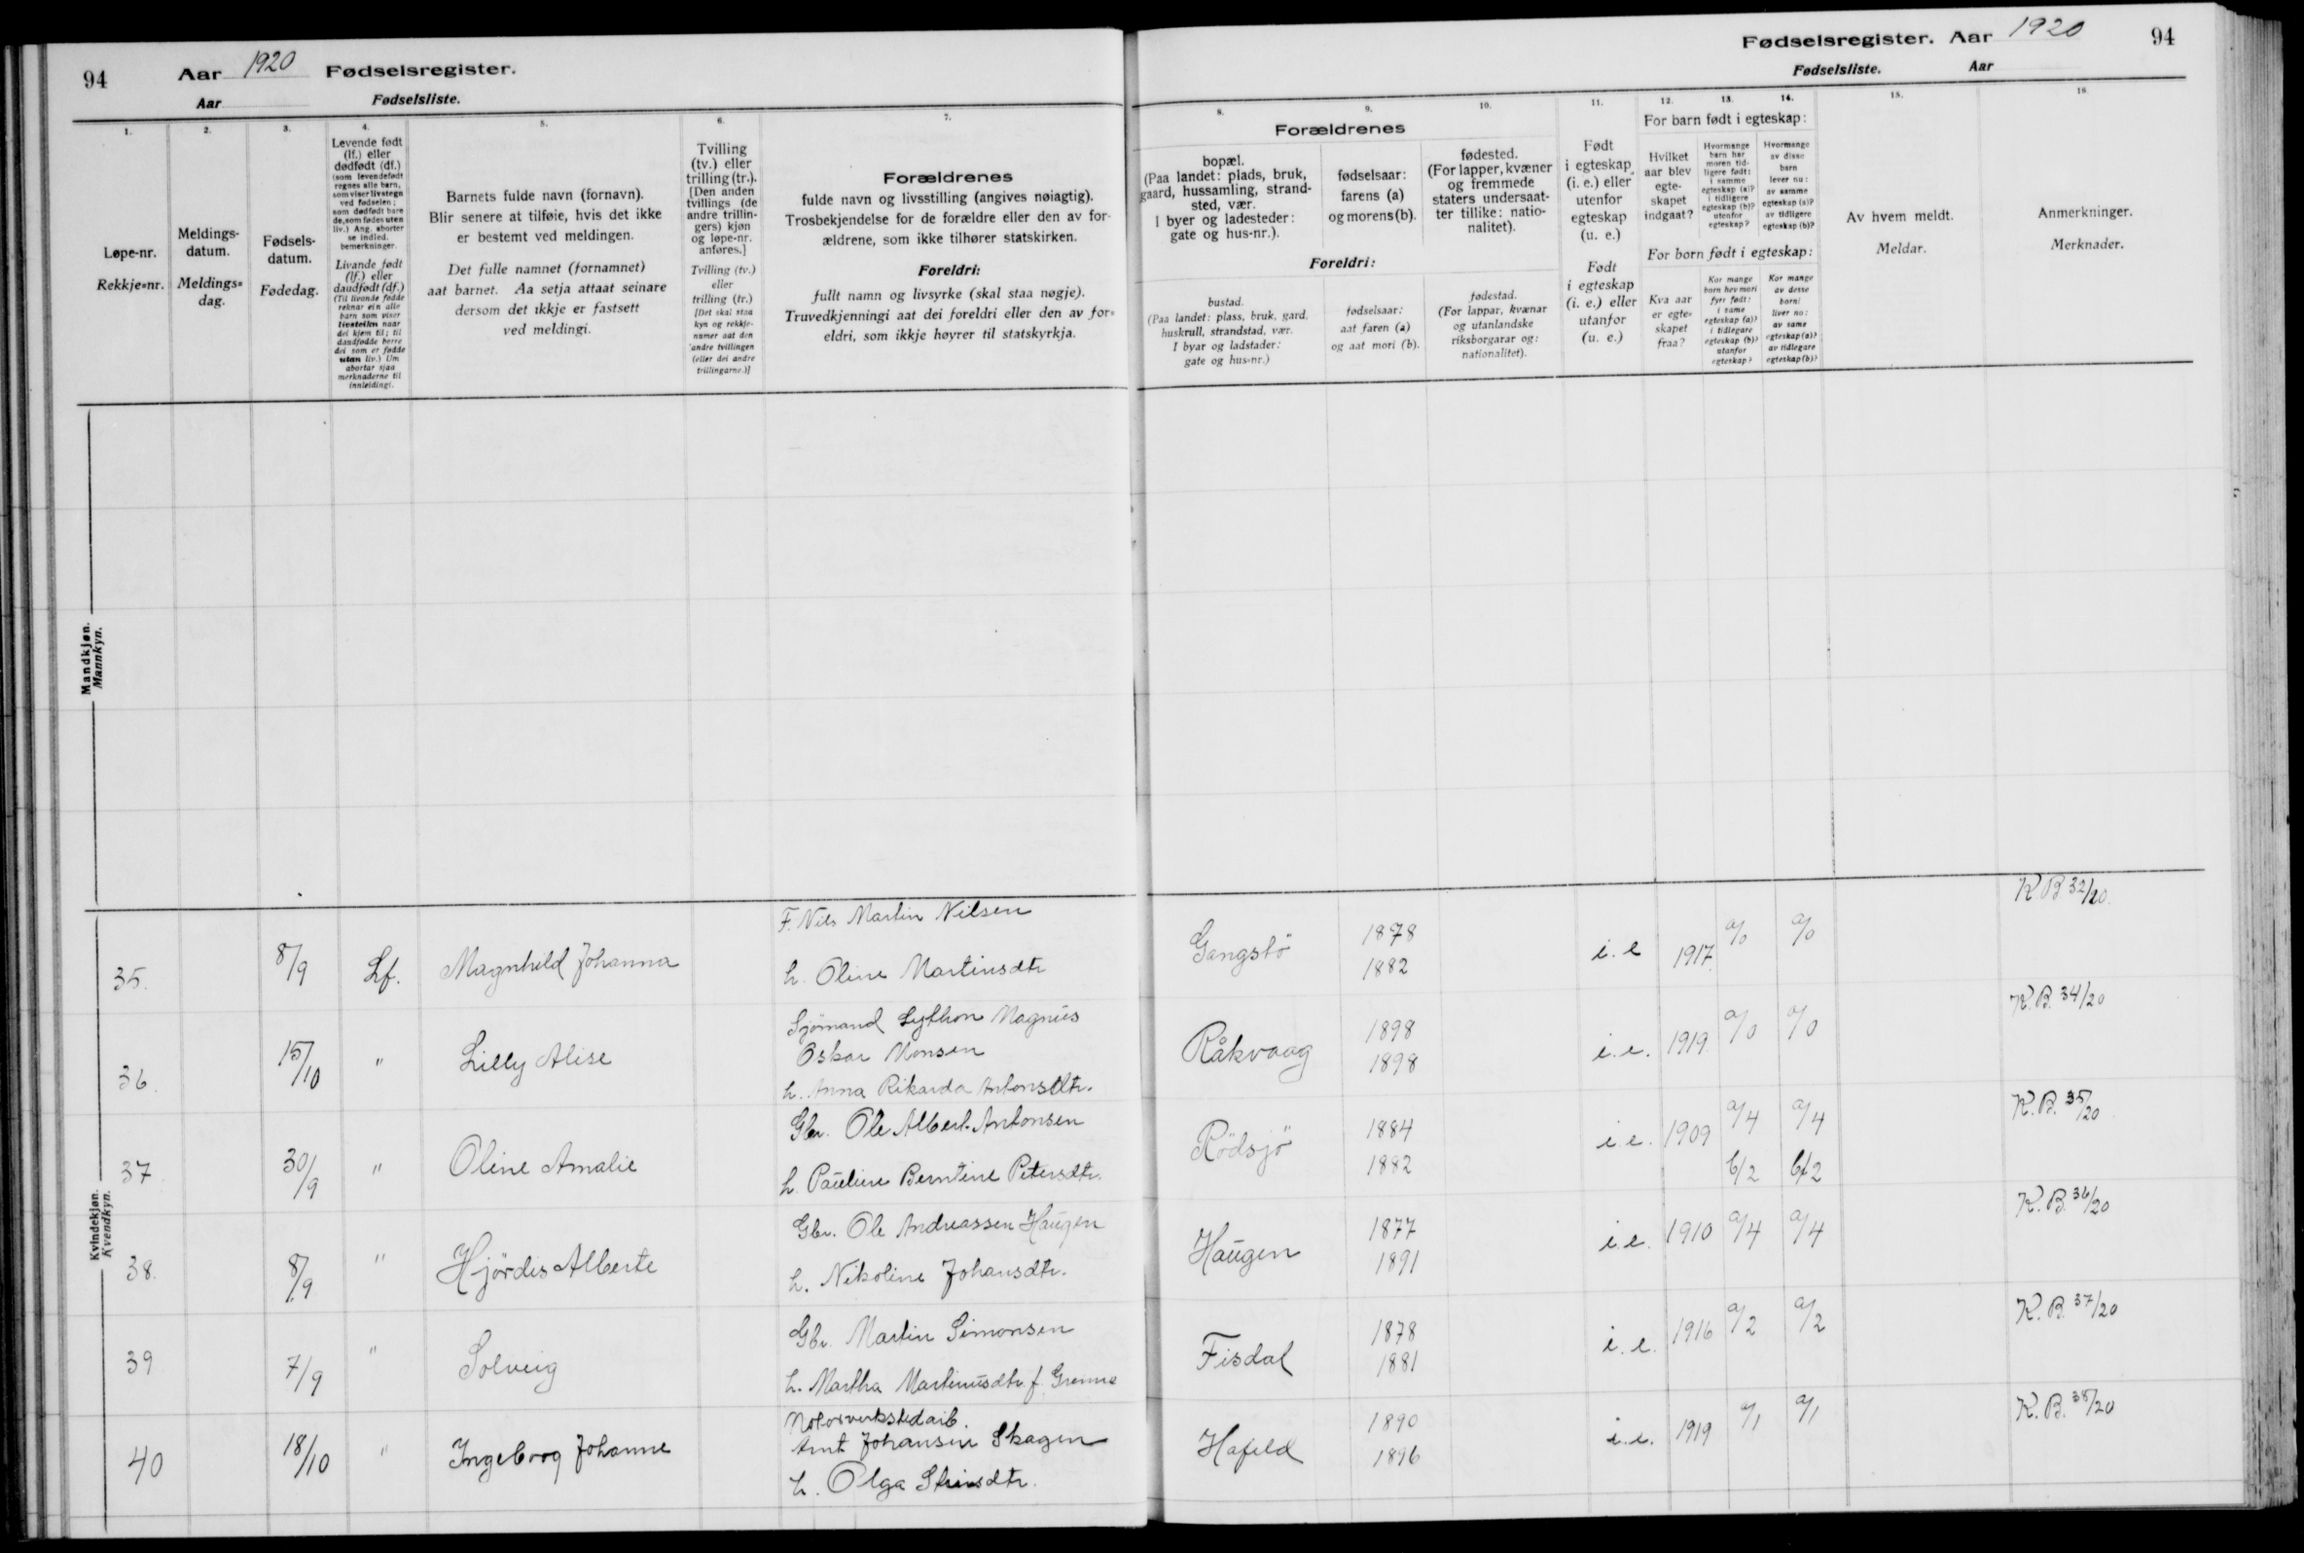 94 Aar 1920 Fødselsregister.
Aar Fødselsliste.
Fødselsregister. Aar 1920 94
Fødselsliste. Aar
1. 2. 3. 4. 5. 6. 7.
Løpe-nr.
Rekkje-nr.
Meldings-
datum.
Meldings-
dag.
Fødsels-
datum.
Fødedag.
Levende født
(lf.) eller
dødfødt (df.)
(som levendefødt
regnes alle barn,
som viser livstegn
ved fødselen;
som dødfødt bare
de, som fødes uten
liv.) Ang. aborter
se indled.
bemerkninger.
Livande født
(lf.) eller
daudfødt (df.)
(Til livande fødde
reknar ein alle
barn som viser
livsteikn naar
dei kjem til; til
daudfødde berre
dei som er fødde
utan liv.) Um
abortar sjaa
merknaderne til
innleidingi.
Barnets fulde navn (fornavn).
Blir senere at tilføie, hvis det ikke
er bestemt ved meldingen.
Det fulle namnet (fornamnet)
aat barnet. Aa setja attaat seinare
dersom det ikkje er fastsett
ved meldingi.
Tvilling
(tv.) eller
trilling (tr.).
[Den anden
tvillings (de
andre trillin-
gers) kjøn
og løpe-nr.
anføres.]
Tvilling (tv.)
eller
trilling (tr.)
[Det skal staa
kyn og rekkje-
numer aat den
andre tvillingen
(eller dei andre
trillingarne.)]
Forældrenes
fulde navn og livsstilling (angives nøiagtig).
Trosbekjendelse for de forældre eller den av for-
ældrene, som ikke tilhører statskirken.
Foreldri:
fullt namn og livsyrke (skal staa nøgje).
Truvedkjenningi aat dei foreldri eller den av for-
eldri, som ikkje høyrer til statskyrkja.
8. 9. 10. 11. 12. 13. 14. 15. 16.
Forældrenes
bopæl.
(Paa landet: plads, bruk,
gaard, hussamling, strand-
sted, vær.
I byer og ladesteder:
gate og hus-nr.).
fødselsaar:
farens (a)
og morens (b).
fødested.
(For lapper, kvæner
og fremmede
staters undersaat-
ter tillike: natio-
nalitet).
Foreldri:
bustad.
(Paa landet: plass, bruk, gard,
huskrull, strandstad, vær.
I byar og ladstader:
gate og hus-nr.)
fødselsaar:
aat faren (a)
og aat mori (b).
fødestad.
(For lappar, kvænar
og utanlandske
riksborgarar og:
nationalitet).
Født
i egteskap
(i. e.) eller
utenfor
egteskap
(u. e.)
Født
i egteskap
(i. e.) eller
utanfor
(u. e.)
For barn født i egteskap:
Hvilket
aar blev
egte-
skapet
indgaat?
Hvormange
barn har
moren tid-
ligere født:
i samme
egteskap (a)?
i tidligere
egteskap (b)?
utenfor
egteskap?
Hvormange
av disse
barn
lever nu:
av samme
egteskap (a)?
av tidligere
egteskap (b)?
For born født i egteskap:
Kva aar
er egte-
skapet
fraa?
Kor mange
born hev mori
fyrr født:
i same
egteskap (a)?
i tidlegare
egteskap (b)?
utanfor
egteskap?
Kor mange
av desse
borni
liver no:
av same
egteskap (a)?
av tidlegare
egteskap (b)?
Av hvem meldt.
Meldar.
Anmerkninger.
Merknader.
Mandkjøn.
Mannkyn.
Kvindekjøn.
Kvendkyn.
F. Nils Martin Nilsen
35. 8/9 Lf. Magnhild Johanna
h. Oline Martinsdtr
Gangstö 1878 i. e 1917. a/0 a/0 K.B 32/20.
1882
Sjömand Lythor Magnus
Oskar Monsen
36. 15/10 " Lilly Alise
h. Anna Rikarda Antonsdtr.
Råkvaag 1898 i. e. 1919. a/0 a/0 K.B. 34/20
1898
Gbr. Ole Albert Antonsen
37 30/9 " Oline Amalie
h. Pauline Berntine Petersdtr.
Rödsjö 1884 i. e. 1909 a/4 a/4 K.B. 35/20
1882 b/2 b/2
Gbr. Ole Andreassen Haugen
38. 8/9 " Hjördis Alberte
h. Nikoline Johansdtr.
Haugen 1877 i. e. 1910 a/4 a/4 K.B. 36/20
1891
Gbr. Martin Simonsen
39 7/9 " Solveig
h. Martha Martinusdtr. f.
Fisdal 1878 i. e. 1916 a/2 a/2 K.B. 37/20
1881
Motorverkstedarb.
Arnt Johansen Skagen
40 18/10 " Ingeborg Johanne
h. Olga
Hafeld 1890 i. e. 1919 a/1 a/1 K.B. 38/20
1896